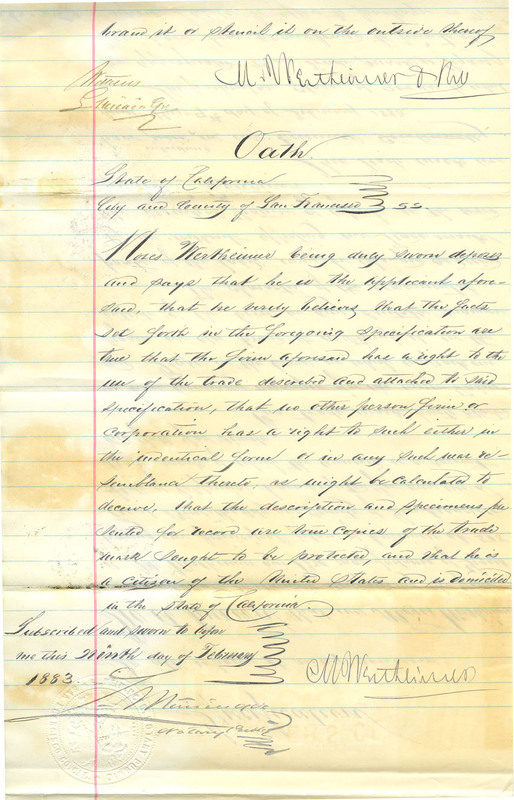 brand it or stencil it on the outside thereof
M. Wertheimer & Bro
Oath.
State of California
City and County of San Francisco } ss.
Moses Wertheimer being duly sworn deposes
and says that he is the applicant afore-
said, that he verily believes that the facts
set forth in the foregoing specification are
true that the firm aforesaid has a right to the
use of the trade described and attached to said
specification, that no other person firm or
corporation has a right to such either in
the indentical form or in any such near re-
semblance thereto, as might be calculated to
deceive, that the description and specimens pre
sented for record are true copies of the trade
mark sought to be protected, and that he is
a citizen of the United States and is domiciled
in the State of California.
Subscribed and sworn to before
me this Ninth day of February
1883.
M Wertheimer
Notary Public